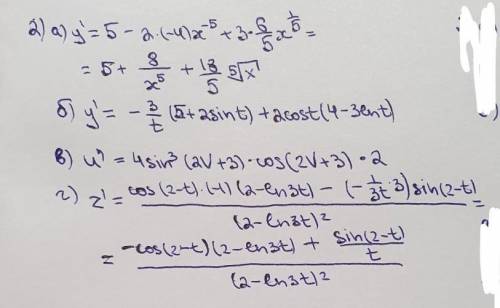 2) а) y' = 5 - 2·(-4)x^-5 + 3·6/5 x^1/5 =
= 5 + 8/x^5 + 18/5 ⁵√x
б) y' = -3/t (5+2sint) + 2cost(4-3lnt)
в) u' = 4sin³(2V+3)·cos(2V+3)·2
г) z' = (cos(2-t)·(-1)(2-ln3t) - (-1/3t·3)sin(2-t))/(2-ln3t)² =
= (-cos(2-t)(2-ln3t) + sin(2-t)/t)/(2-ln3t)²